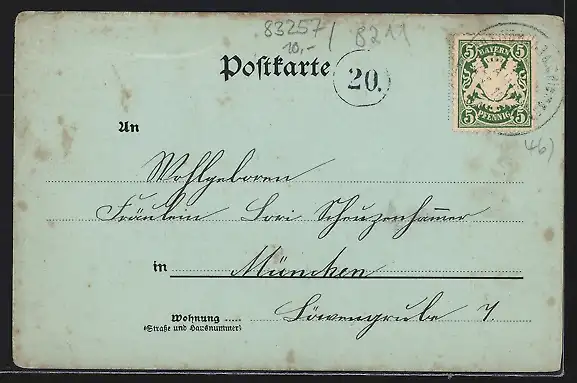 83257/ 8211
10,-
Postkarte
20.
5 BAYERN 5
5 PFENNIG 5
46)
An
Wohlgeboren
Fräulein Lori Scheuzenhammer
in München
Wohnung ..... Löwengrube 7.
(Straße und Hausnummer)